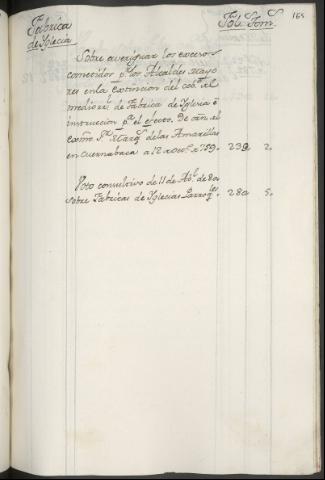 Fabrica
de Yglecia
Fol. Tom.
165
Sobre averiguar los excesos
cometidos pr. los Alcaldes Mayo
res en la exttincion del
medio rl. de Fabrica de Yglecia é
instruccion pa. el efecto. De orn. al
Exmo. Sr. Marqs. de las Amarillas
en Cuernabaca a 12 239. 2.
Voto consultivo de 11 de Abl. de
sobre Fabricas de Yglecias Parroqs. 280. 5.